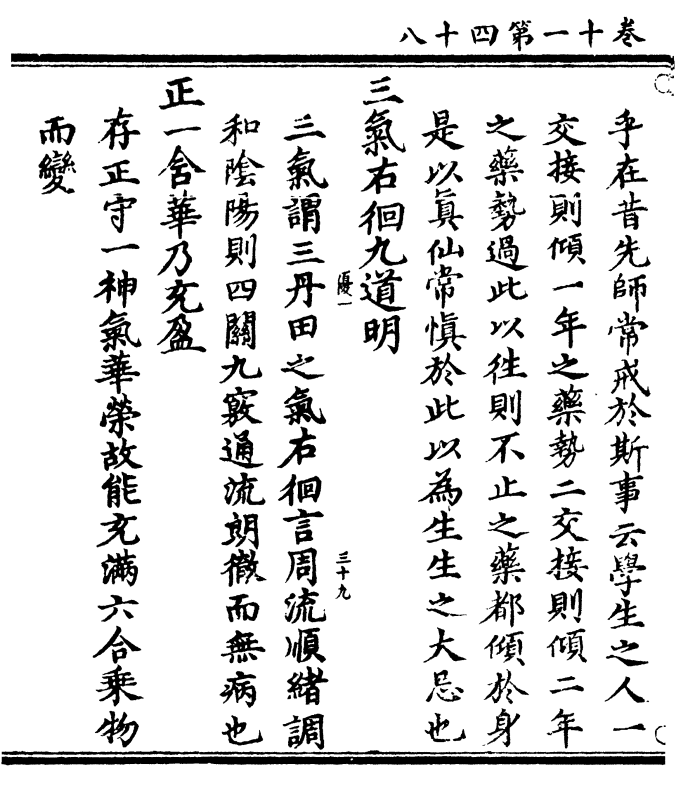 卷十一第四十八
乎在昔先師常戒於斯事云學生之人一
交接則傾一年之藥勢二交接則傾二年
之藥勢過此以往則不止之藥都傾於身
是以真仙常慎於此以為生生之大忌也
三氣右徊九道明
優一
三十九
三氣謂三丹田之氣右徊言周流順緒調
和陰陽則四關九竅通流朗徹而無病也
正一含華乃充盈
存正守一神氣華榮故能充滿六合乘物
而變